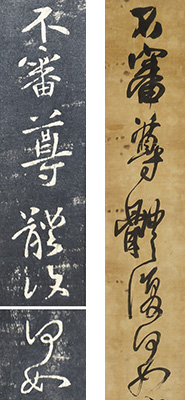 不審尊體復何如
不審尊體復何如